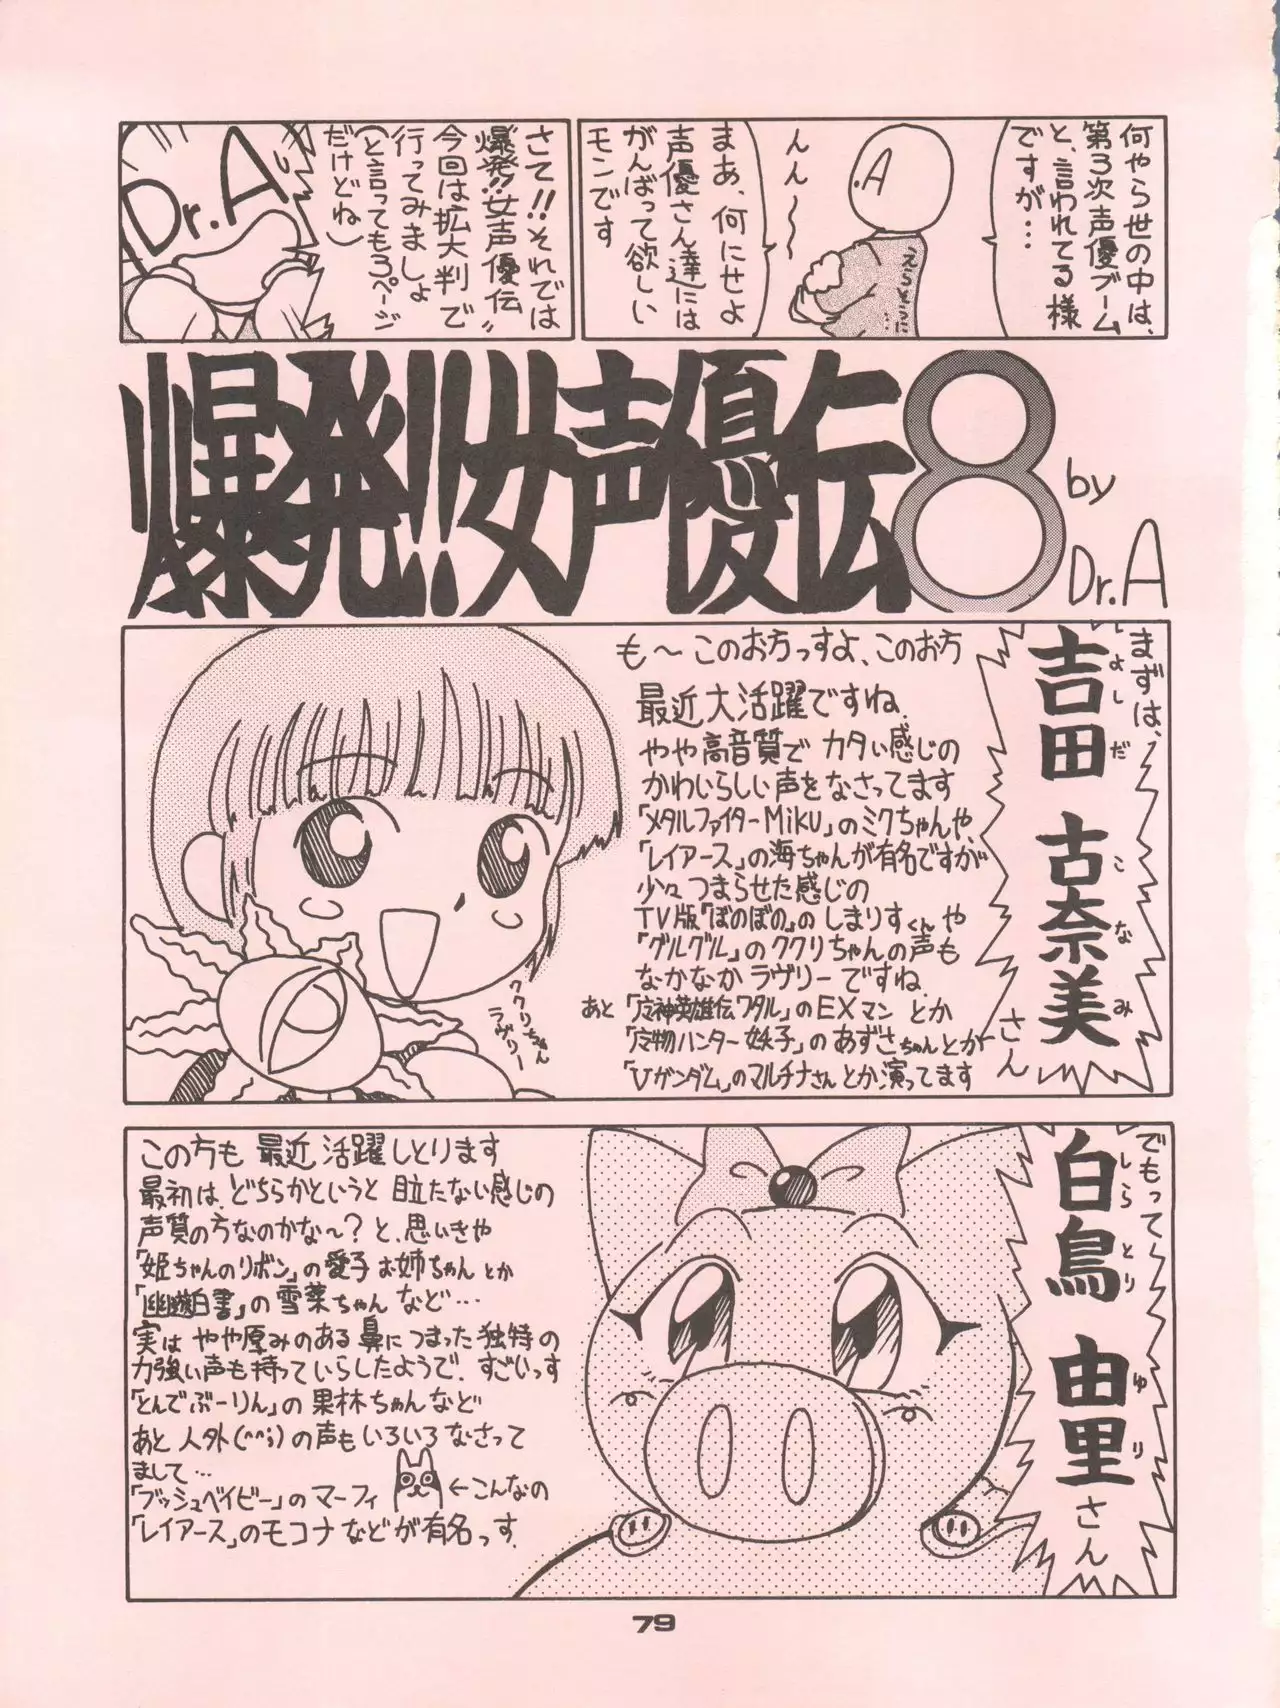 何やら世の中は、
第3次声優ブーム
と、言われてる様
ですが…
A
んん〜〜
まあ、何にせよ
声優さん達には
がんばって欲しい
モンです
さて!!それでは
爆発!!女声優伝"
今回は拡大判で
行ってみましょ
(と言っても3ページ
だけどね)
Dr.A
爆発!!女声優伝8
by
Dr.A
まずは、
吉田 古奈美
よしだ こなみ
さん
も〜このお方っすよ、このお方
最近大活躍ですね。
やや高音質で カタい感じの
かわいらしい声をなさってます
「メタルファイターMiKU」のミクちゃんや、
「レイアース」の海ちゃんが有名ですが
少々つまらせた感じの
TV版『ぼのぼの』のしまりすくんや
「グルグル」のククリちゃんの声も
なかなかラヴリーですね。
あと「魔神英雄伝ワタル」のEXマン とか
「魔物ハンター妖子」のあずさちゃんとか
「Vガンダム」のマルチナさんとか演ってます
ククリちゃん
ラヴリー
でもって
白鳥 由里
しらとり ゆり
さん
この方も最近活躍しとります
最初は、どちらかというと目立たない感じの
声質の方なのかな〜?と、思いきや
「姫ちゃんのリボン」の愛子お姉ちゃんとか
「幽遊白書」の雪菜ちゃんなど…
実はやや厚みのある鼻につまった独特の
力強い声も持っていらしたようで、すごいっす
「とんでぶーりん」の果林ちゃんなど
あと人外(^^;)の声もいろいろなさって
まして…
「ブッシュベイビー」のマーフィ
←こんなの
「レイアース」のモコナなどが有名っす。
79